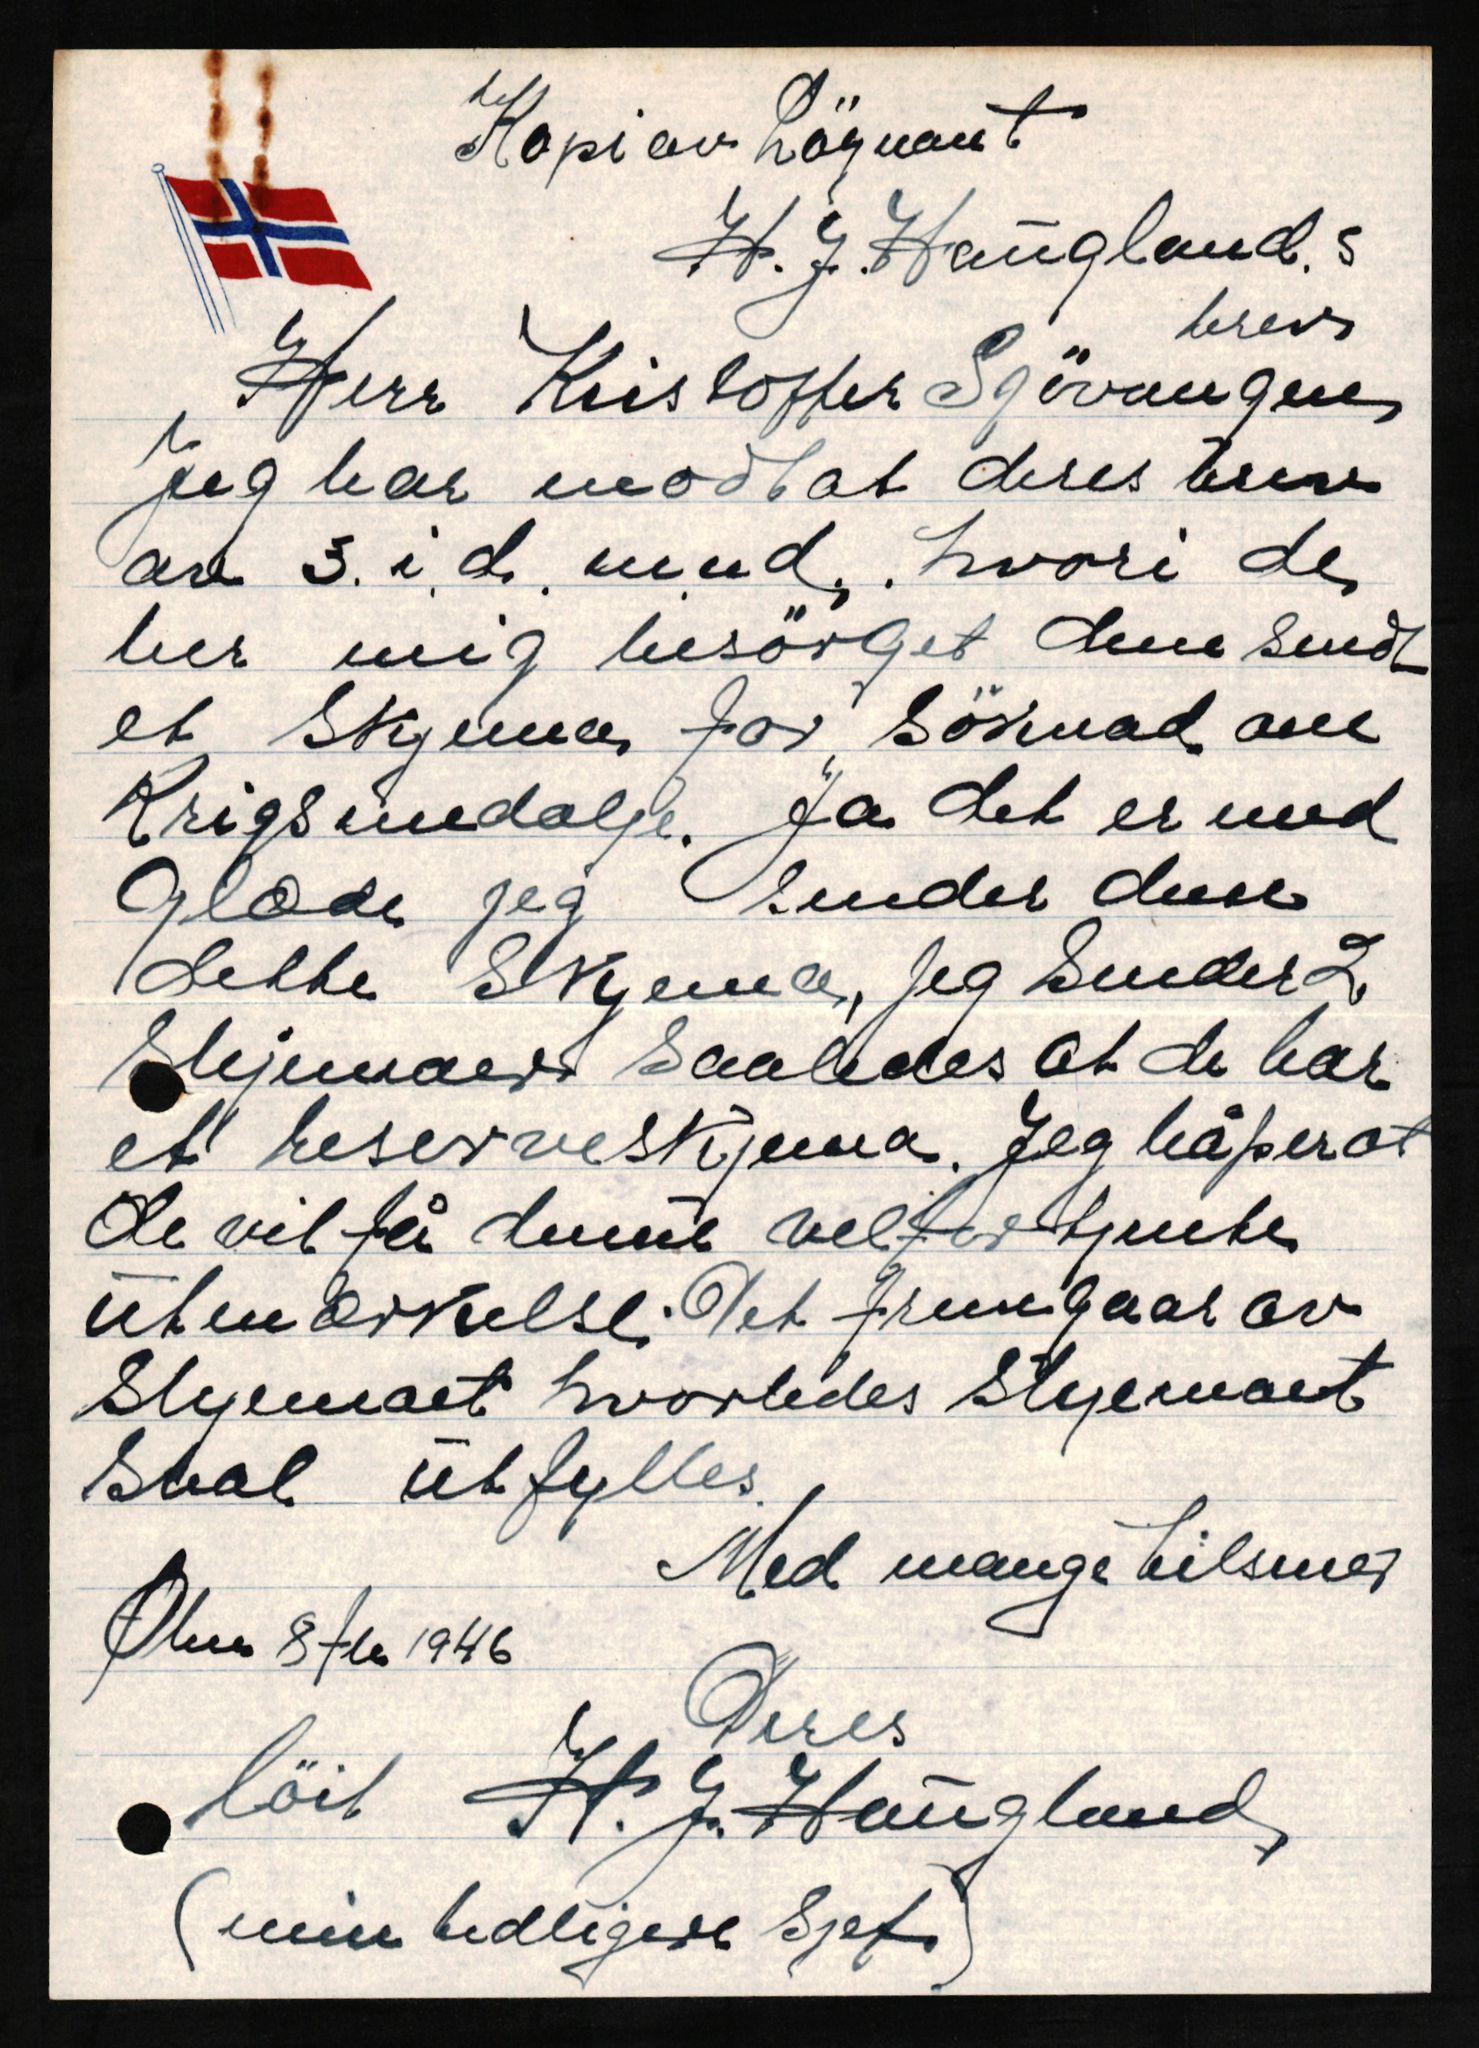 Kopi av Löynant
H. J. Haugland.s
brev
Herr Kristoffer Sjövangen
Jeg har modtat deres brev
av 3. i. d. mnd, hvori de
ber mig besörget dem sendt
et Skjema for Söknad om
Krigsmedalje. Ja det er med
Glæde jeg sender dem
dette Skjema, jeg sender 2
Skjemaer Saaledes at de har
et reserveskjema. Jeg håper at
de vil få denne velfortjente
Utmærkelse. Det fremgaar av
Skjemaet hvorledes Skjemaet
Skal Utfylles.
Med mange hilsner
8 feb 1946
Deres
Löit H. J. Haugland
(min tedligere Sjef.)